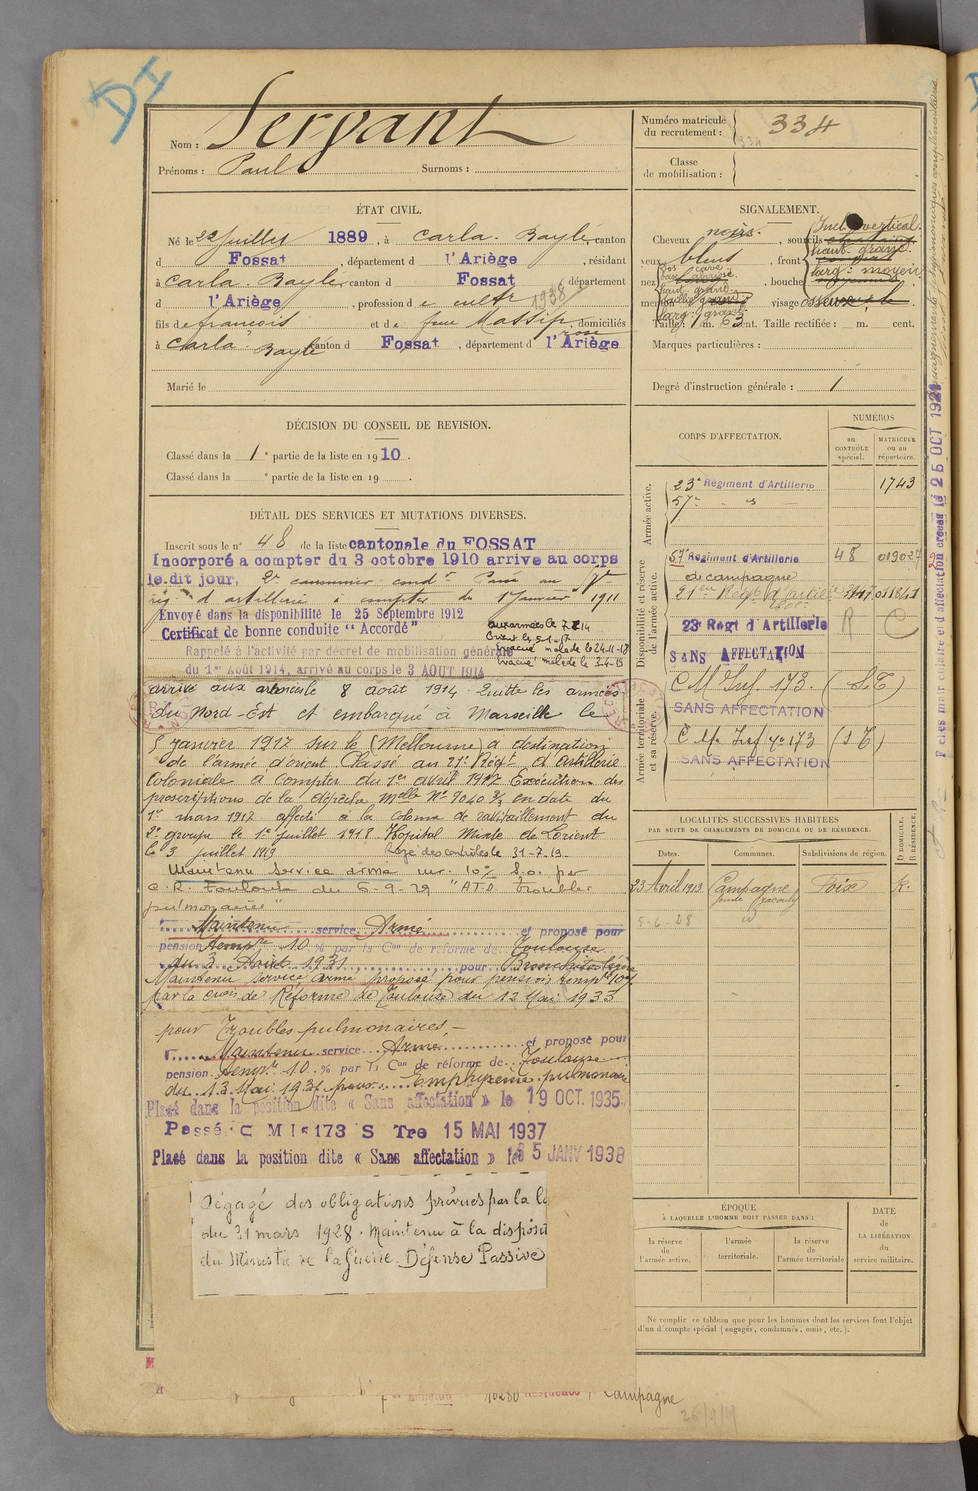 DI
Nom : Sergant
Prénoms : Paul Surnoms :
Numéro matricule du recrutement : 334
Classe de mobilisation :
ÉTAT CIVIL.
Né le 22 juillet 1889, à Carla-Bayle canton
d Fossat, département d l'Ariège, résidant
à Carla-Bayle canton d Fossat département
d l'Ariège, profession de cultr 1938
fils de françois et de feue Massip rose, domiciliés
à Carla Bayle canton d Fossat, département d l'Ariège
Marié le
SIGNALEMENT.
Cheveux noirs, sourcils
yeux bleus, front
nez , bouche
menton , visage
Taille : 1 m. 63 cent. Taille rectifiée : m. cent.
Marques particulières :
Degré d'instruction générale : 1
DÉCISION DU CONSEIL DE REVISION.
Classé dans la 1e partie de la liste en 1910.
Classé dans la e partie de la liste en 19 .
DÉTAIL DES SERVICES ET MUTATIONS DIVERSES.
Inscrit sous le n° 48 de la liste cantonale du FOSSAT
Incorporé a compter du 3 octobre 1910 arrive au corps
le dit jour, 2e canonnier condr Passé au 57e
rég. d'artillerie à compter du 1 Janvier 1911
Envoyé dans la disponibilité le 25 Septembre 1912
Certificat de bonne conduite "Accordé"
Rappelé à l'activité par décret de mobilisation générale
du 1er Août 1914, arrivé au corps le 3 AOUT 1914
aux armées le 7.8.14
Orient le 5-1-17
Evacué malade le 24-11-18
Evacué malade le 3-4-19
arrivé aux armées le 8 août 1914 Quitte les armées
du Nord-Est et embarqué à Marseille le
5 janvier 1917 sur le (Melbourne) à destination
de l'armée d'orient Classé au 21e Régt d'artillerie
Coloniale à compter du 1er avril 1917 Exécution des
prescriptions de la dépêche Mlle No 9040 3/3 en date du
1er mars 1917 affecté à la colonne de ravitaillement du
2e groupe le 1er juillet 1918 Hôpital Mixte de Lorient
le 3 juillet 1919 Rayé des contrôles le 31-7-19.
Maintenu service armé inv. 10% S.O. par
C.R. Toulouse du 6-9-29 "ATD troubles
pulmonaires"
Maintenu service Armé et proposé pour
pension tempre 10 % par la Con de réforme de Toulouse
du 3 Août 1931 pour
Maintenu service armé proposé pour pension tempre 10%
par la Cion de Réforme de Toulouse du 12 Mai 1933
pour Troubles pulmonaires.-
Maintenu service Armé et proposé pour
pension tempre 10 % par la Con de réforme de Toulouse
du 13 Mai 193 pour Emphysème pulmonaire
Placé dans la position dite « Sans affectation » le 19 OCT. 1935
Passé C M I 173 S Tre 15 MAI 1937
Placé dans la position dite « Sans affectation » le 5 JANV 1938
Dégagé des obligations prévues par la lo
du 31 mars 1928. Maintenu à la disposit
du Ministre de la Guerre. Défense Passive
CORPS D'AFFECTATION.
NUMÉROS
au CONTRÔLE spécial.
MATRICULE ou au répertoire.
Armée active.
23e Régiment d'Artillerie 1743
57e - - s -
Disponibilité et réserve de l'armée active.
57e Régiment d'Artillerie 48 019027
de campagne
23e Regt d'Artillerie R C
SANS AFFECTATION
Armée territoriale et sa réserve.
C M Inf. 173. (S.T)
SANS AFFECTATION
C M Inf no 173 (S T)
SANS AFFECTATION
LOCALITÉS SUCCESSIVES HABITÉES
PAR SUITE DE CHANGEMENTS DE DOMICILE OU DE RÉSIDENCE.
Dates. Communes. Subdivisions de région. D DOMICILE. R RÉSIDENCE.
23 Avril 1913 Campagne Foix R.
5-6-28 id
ÉPOQUE
À LAQUELLE L'HOMME DOIT PASSER DANS :
la réserve de l'armée active.
l'armée territoriale.
la réserve de l'armée territoriale
DATE de LA LIBÉRATION du service militaire.
Ne remplir ce tableau que pour les hommes dont les services font l'objet
d'un d'compte spécial (engagés, condamnés, omis, etc.).
10280 Résidence Campagne
26/9/9